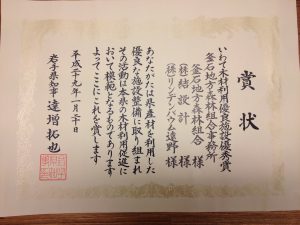 賞状
いわて木材利用優良施設優秀賞
釜石地方森林組合事務所
釜石地方森林組合 様
(株)結設計 様
(株)リンデンバウム遠野 様
あなたがたは県産材を利用した
優良な施設整備に取り組まれ
その活動は本県の木材利用促進に
おいて模範となるものであります
よってここにこれを賞します
平成二十九年一月二十日
岩手県知事 達増拓也